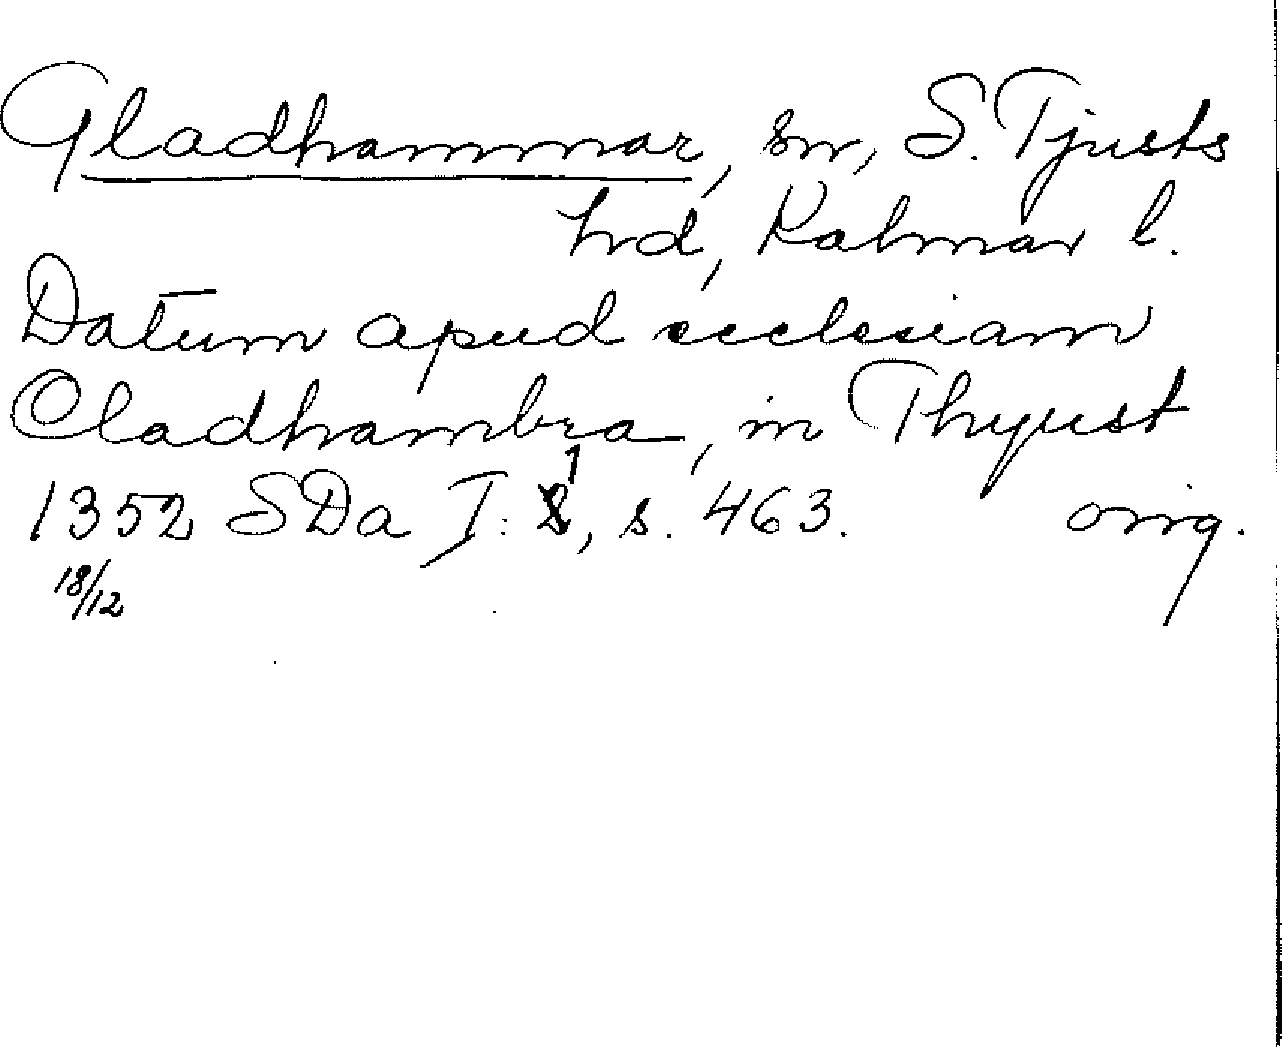 Gladhammar, sn, S. Tjusts
hrd, Kalmar l.
Datum apud ecclesiam
Cladhambra, in Thyust
1352 SDa I: 1, s. 463. orig.
18/12